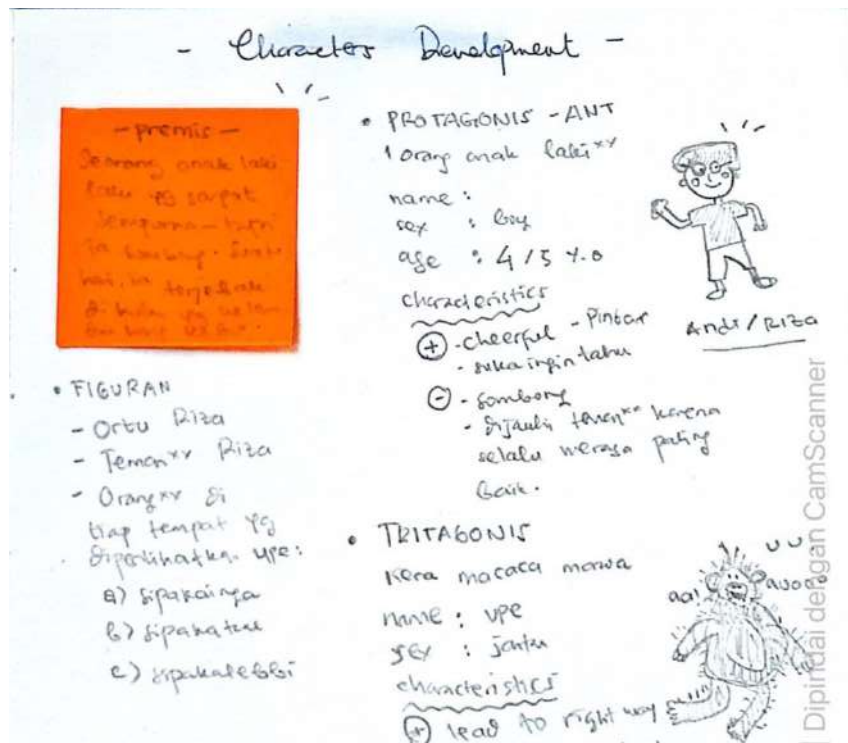 - Character Development -
- premis -
Seorang anak laki
laki yg sangat
sempurna - tapi
ia sombong. Suatu
hari, ia terjebak
di hutan yg
• PROTAGONIS - ANT
1 orang anak laki xx
name :
sex : boy
age : 4 / 5 y.o
characteristics
+ - cheerful - Pintar
- suka ingin tahu
- - sombong
- dijauhi temen xx karena
selalu merasa paling
baik.
Andi / Riza
• FIGURAN
- Ortu Riza
- Temen xx Riza
- Orang xx di
tiap tempat yg
diperlihatkan upe:
a) sipakainga
b) sipakatau
c) sipakalebbi
• TRITAGONIS
Kera macaca maura
name : upe
sex : jantan
characteristics
+ lead to right way
aa!
uu
auooo
Dipindai dengan CamScanner